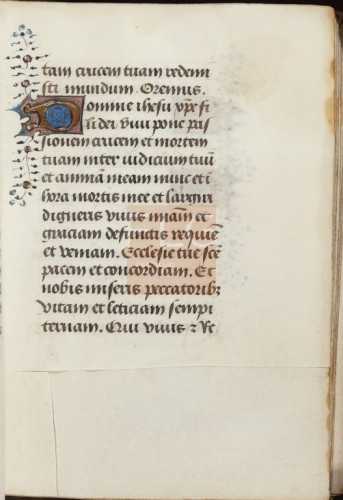 tam crucem tuam redemi
sti mundum. Oremus.
Domine ihesu xpe fi
li dei viui pone pas
sionem crucem et mortem
tuam inter iudicium tuū
et animā meam nunc et ī
hora mortis mee et largiri
digneris viuis miam̄ et
graciam defunctis requiē
et veniam. Ecclesie tue scē
pacem et concordiam. Et
nobis miseris peccatoribꝫ
vitam et leticiam sempi
ternam. Qui viuis ⁊ Re